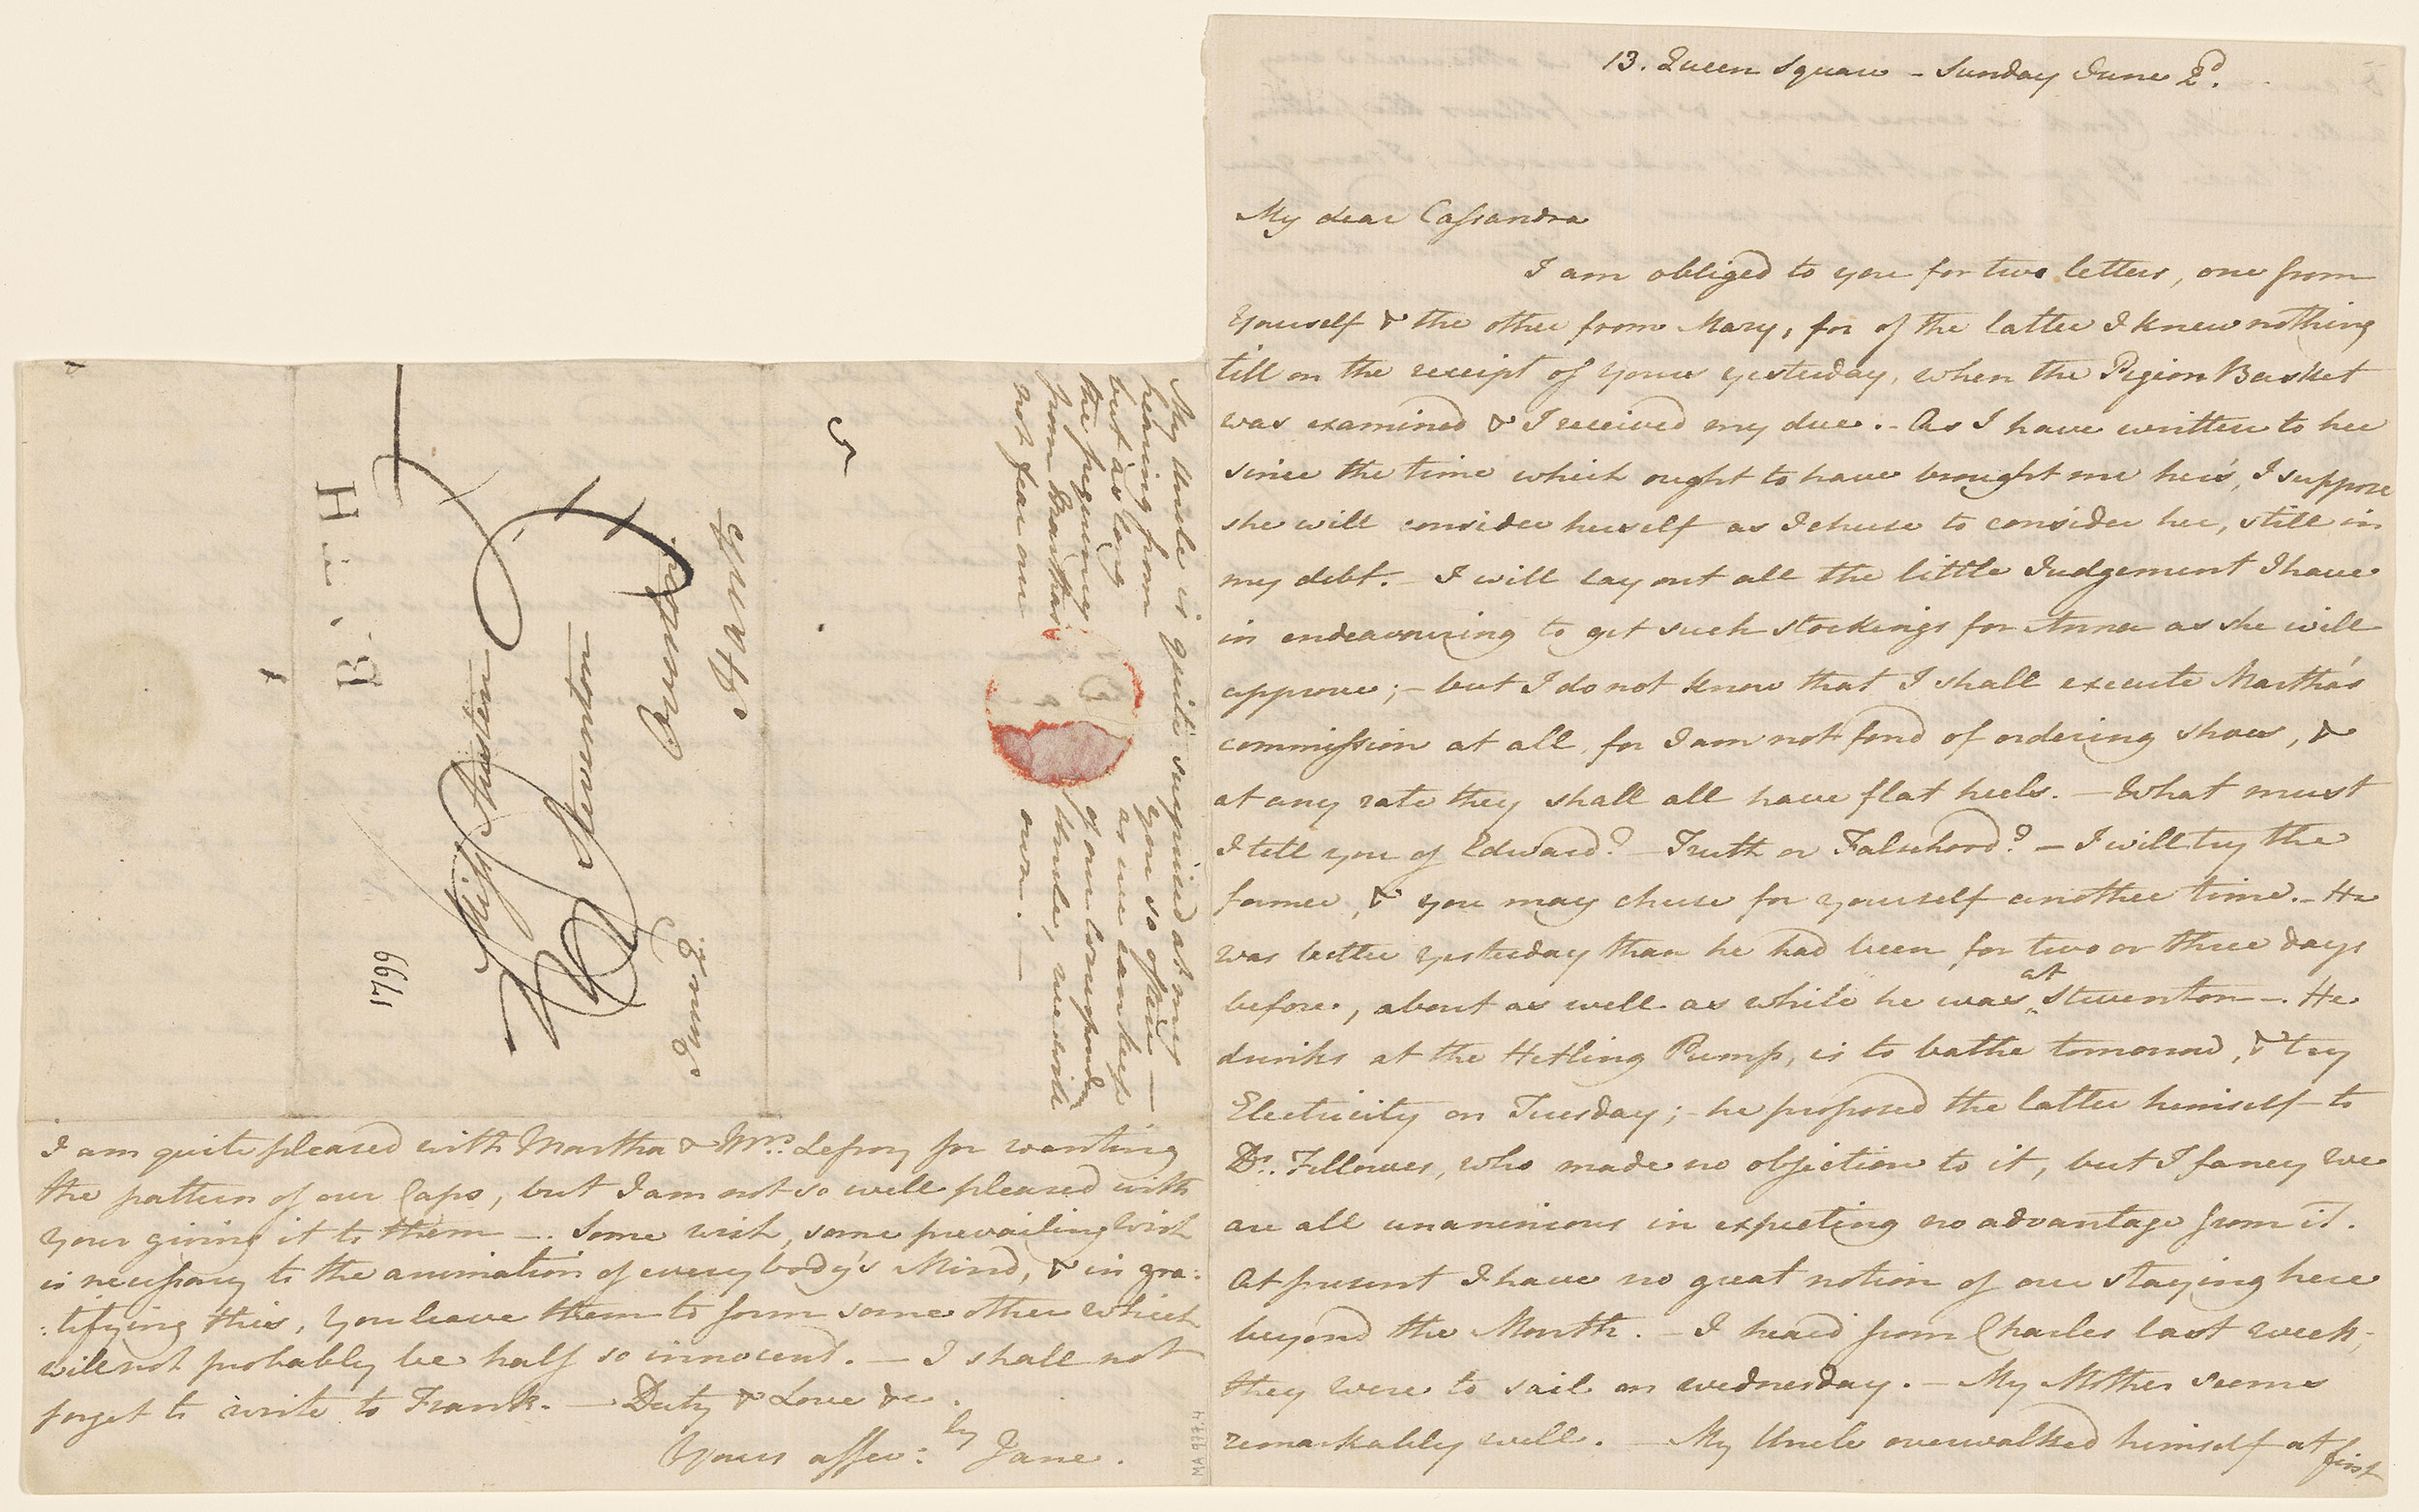 13. Queen Square - Sunday June 2d.
My dear Cassandra
I am obliged to you for two letters, one from
Yourself & the other from Mary, for of the latter I knew nothing
till on the receipt of Yours yesterday, when the Pigeon Basket
was examined & I received my due. - As I have written to her
since the time which ought to have brought me her's, I suppose
she will consider herself as I chuse to consider her, still in
my debt. - I will lay out all the little Judgement I have
in endeavouring to get such stockings for Anna as she will
approve; - but I do not know that I shall execute Martha's
commission at all, for I am not fond of ordering shoes, &
at any rate they shall all have flat heels. - What must
I tell you of Edward? - Truth or Falsehood? - I will try the
former, & you may chuse for yourself another time. - He
was better yesterday than he had been for two or three days
before, about as well as while he was at Steventon -. He
drinks at the Hetling Pump, is to bathe tomorrow, & try
Electricity on Tuesday; - he proposed the latter himself to
Dr. Fellowes, who made no objection to it, but I fancy we
are all unanimous in expecting no advantage from it.
At present I have no great notion of our staying here
beyond the Month. - I heard from Charles last week;
they were to sail on wednesday. - My Mother seems
remarkably well. - My Uncle overwalked himself at first
My Uncle is quite surprised at my
hearing from you so often -
but as long as we can keep
the frequency of our correspondence
from Martha's Uncle, we will
not fear our own. -
5
BATH
Miss Austen
Steventon
Overton
Hants
June 2
1799
I am quite pleased with Martha & Mrs. Lefroy for wanting
the pattern of our Caps, but I am not so well pleased with
Your giving it to them -. Some wish, some prevailing Wish
is necessary to the animation of everybody's Mind, & in gra:
:tifying this, You leave them to form some other which
will not probably be half so innocent. - I shall not
forget to write to Frank. - Duty & Love &c.
Yours affec:ly Jane.
MA 977.4